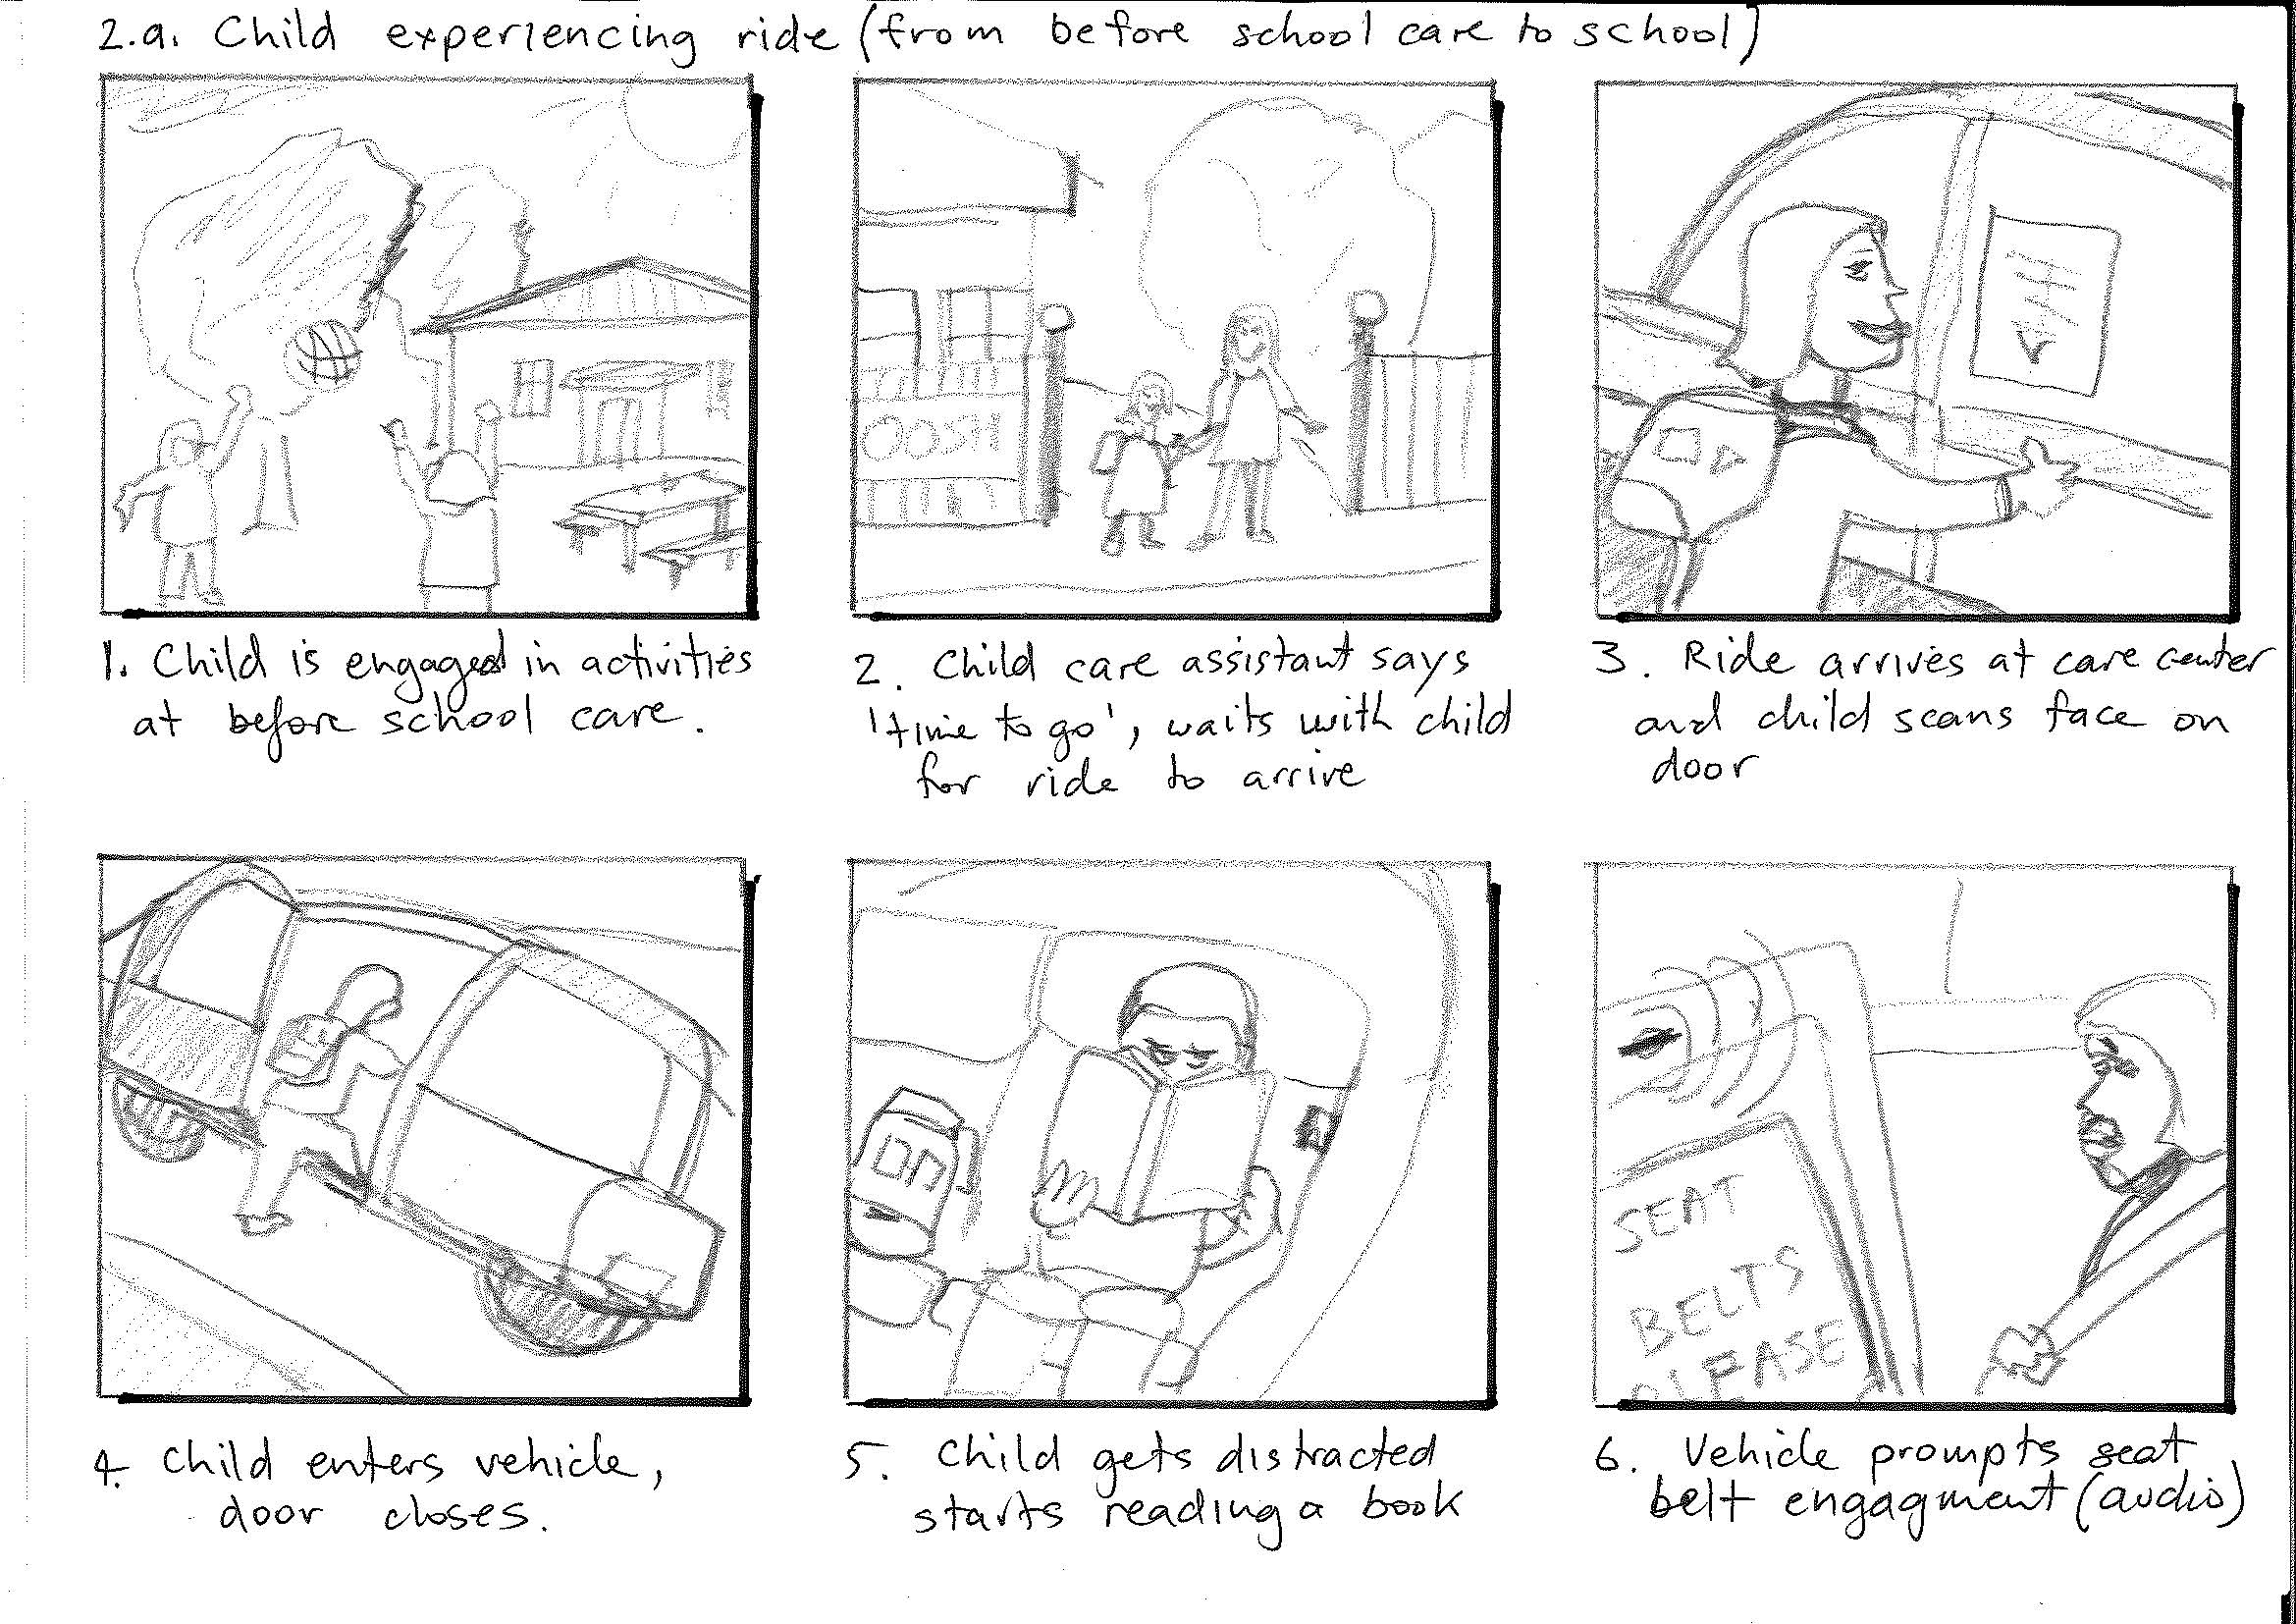 2.a. Child experiencing ride (from before school care to school)
OOSH
1. Child is engaged in activities
at before school care.
2. Child care assistant says
'time to go', waits with child
for ride to arrive
3. Ride arrives at care center
and child scans face on
door
SEAT
BELTS
PLEASE
4. Child enters vehicle,
door closes.
5. Child gets distracted
starts reading a book
6. Vehicle prompts seat
belt engagment (audio)